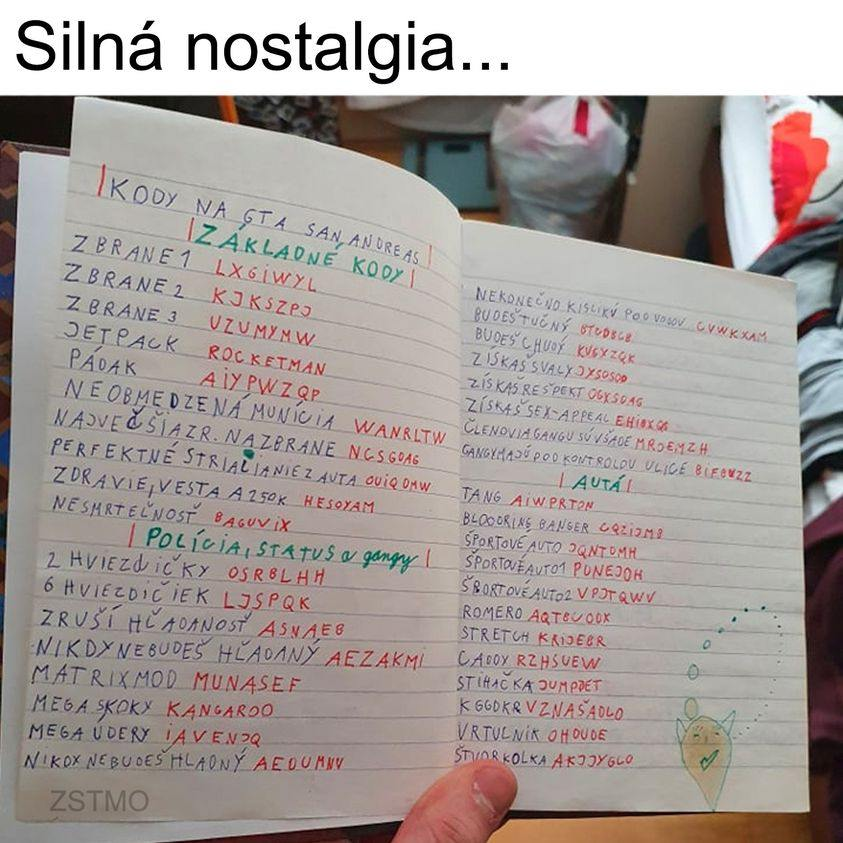 Silná nostalgia...
KODY NA GTA SAN ANDREAS
ZÁKLADNÉ KODY
ZBRANE 1 LXGIWYL
ZBRANE 2 KJKSZPJ
ZBRANE 3 UZUMYMW
JETPACK ROCKETMAN
PÁDAK AIYPWZQP
NEOBMEDZENÁ MUNÍCIA WANRLTW
NAJVEČŠÍA ZR. NA ZBRANE NCSGDAG
PERFEKTNÉ STRIALIANIE Z AUTA OUIQDMW
ZDRAVIE, VESTA A 250K HESOYAM
NESMRTEĽNOSŤ BAGUVIX
POLÍCIA, STATUS a gangy
2 HVIEZDIČKY OSRBLHH
6 HVIEZDIČIEK LJSPQK
ZRUŠÍ HĽADANOSŤ ASNAEB
NIKDY NEBUDEŠ HĽADANÝ AEZAKMI
MATRIX MOD MUNASEF
MEGA SKOKY KANGAROO
MEGA UDERY IAVENJQ
NIKDY NEBUDEŠ HLADNÝ AEDUMNV
NEKONEČNO KISLIKU POD VODOU CVWKXAM
BUDEŠ TUČNÝ BTCDBCB
BUDEŠ CHUDÝ KVGYZQK
ZÍSKAŠ SVALY JYSDSOD
ZÍSKAŠ REŠPEKT OGXSDAG
ZÍSKAŠ SEX-APPEAL EHIBXQS
ČLENOVIA GANGU SÚ VŠADE MROEMZH
GANGY MAJÚ POD KONTROLOU ULICE BIFBUZZ
AUTÁ
TANG AIWPRTON
BLOODRING BANGER CQZIJMB
ŠPORTOVÉ AUTO JQNTDMH
ŠPORTOVÉ AUTO1 PDNEJOH
ŠBORTOVÉ AUTO2 VPJTQWV
ROMERO AQTBCODX
STRETCH KRIJEBR
CADDY RZHSUEW
STIHAČKA JUMPJET
KGGDKR VZNAŠADLO
VRTULNIK OHDUDE
ŠTVORKOLKA AKJJYGLO
ZSTMO